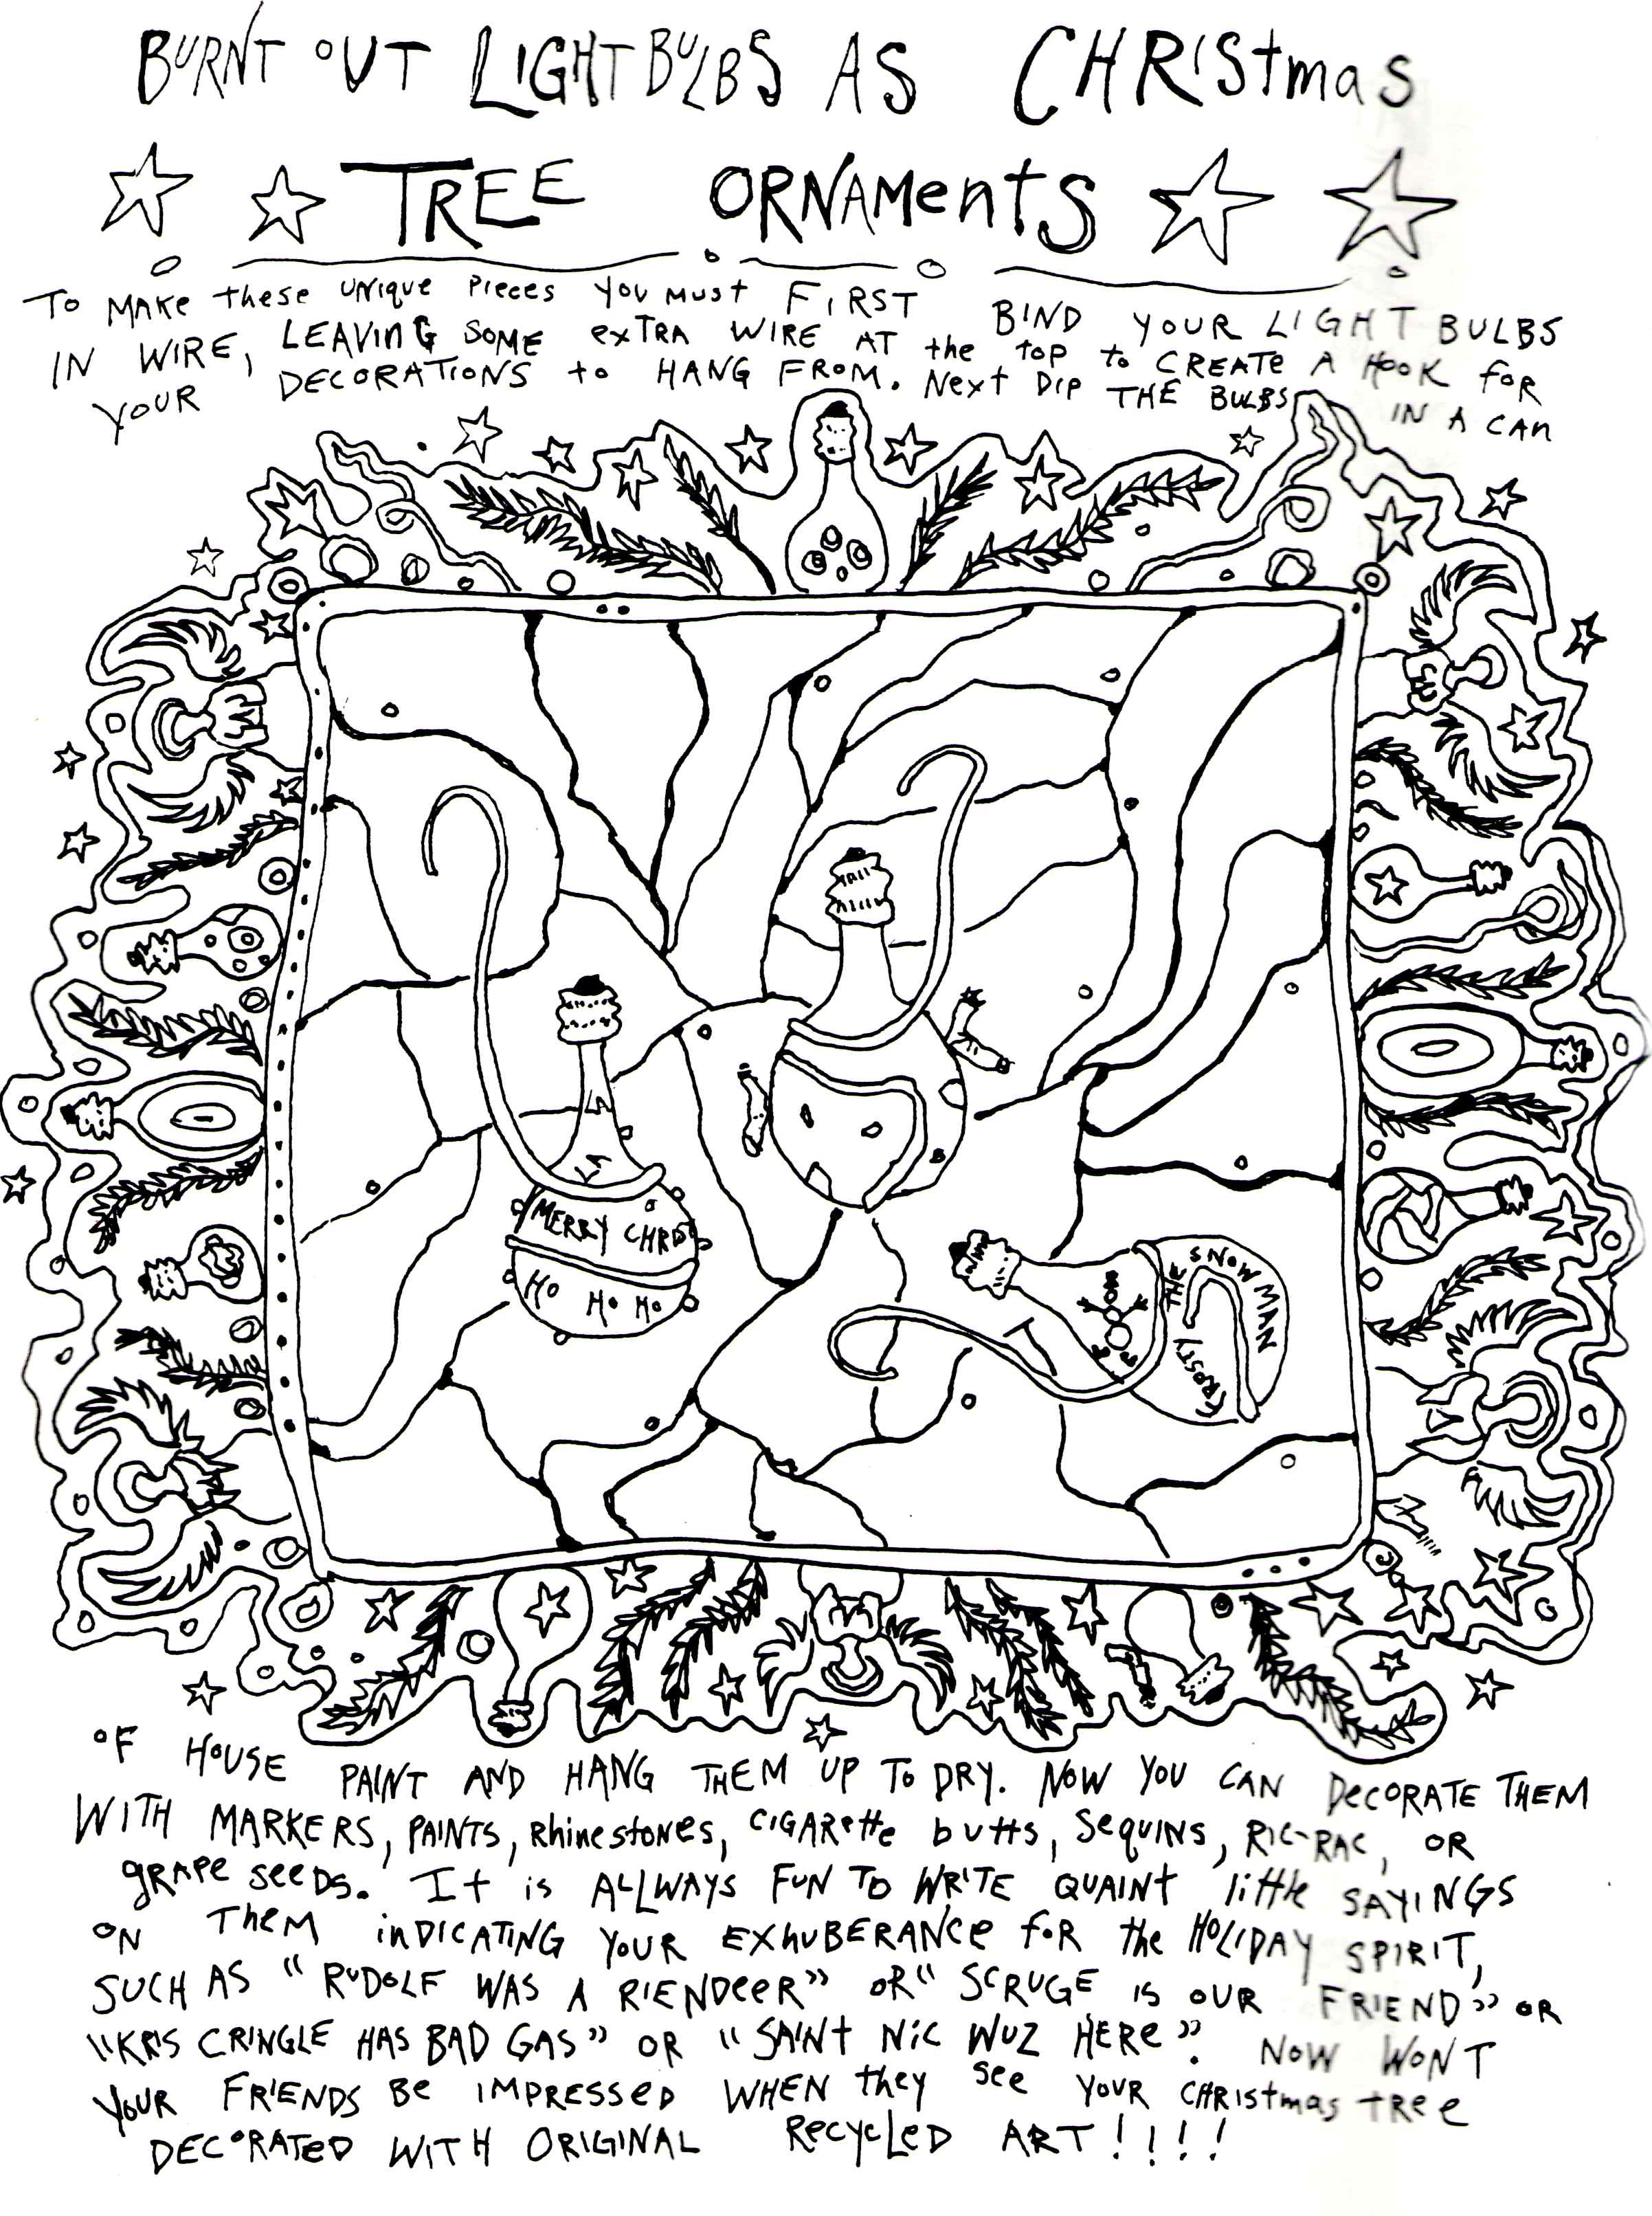 BURNT OUT LIGHTBULBS AS CHRIStmas
TREE ORNAMentS
To MAKE these UNique Pieces You must FIRST BIND YOUR LIGHT BULBS
IN WIRE, LEAVING SOME exTRA WIRE AT the top to CREATE A HOOK foR
YOUR DECORATIONS to HANG FROM. Next DIP THE BULBS IN A CAN
MERRY CHRIST
HO HO HO
FROSTY THE SNOWMAN
OF HOUSE PAINT AND HANG THEM UP TO DRY. NOW YOU CAN DeCORATE THEM
WITH MARKERS, PAINTS, Rhinestones, CIGARette butts, SeQUINS, RIC-RAC, OR
gRAPe seeDs. It is ALLWAYS FUN TO WRITE QUAINt little SAYINGS
ON Them inDICATING YOUR EXHUBERANCE foR the HOLIDAY SPIRIT,
SUCH AS "RUDOLF WAS A RIENDeeR" OR "SCRUGE IS OUR FRIEND" OR
"KRIS CRINGLE HAS BAD GAS" OR "SAINt NIC WUZ HERe". NOW WONT
YOUR FRIENDS Be IMPRESSED WHEN they see YOUR CHRIStmas tRee
DECORATeD WITH ORIGINAL RecycLeD ART!!!!